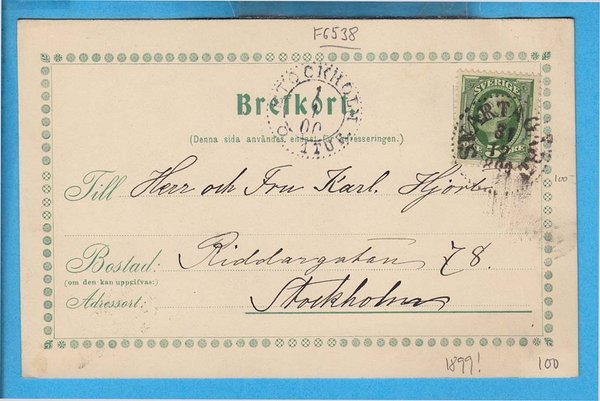 F6538
STOCKHOLM
1
1
00
SVERIGE
Brefkort.
(Denna sida användes endast för adresseringen.)
SVARTÅ
31
12
Till Herr och Fru Karl. Hjort
100
Bostad: Riddargatan 78.
(om den kan uppgifvas:)
Adressort: Stockholm
1899!
100